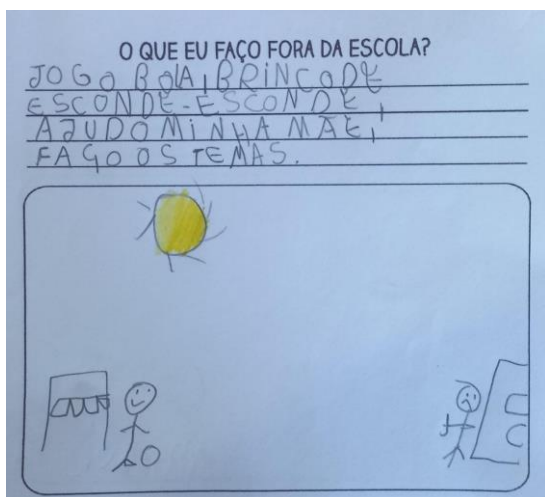 O QUE EU FAÇO FORA DA ESCOLA?
JOGO BOLA, BRINCO DE
ESCONDE-ESCONDE,
AJUDO MINHA MÃE,
FAÇO OS TEMAS.